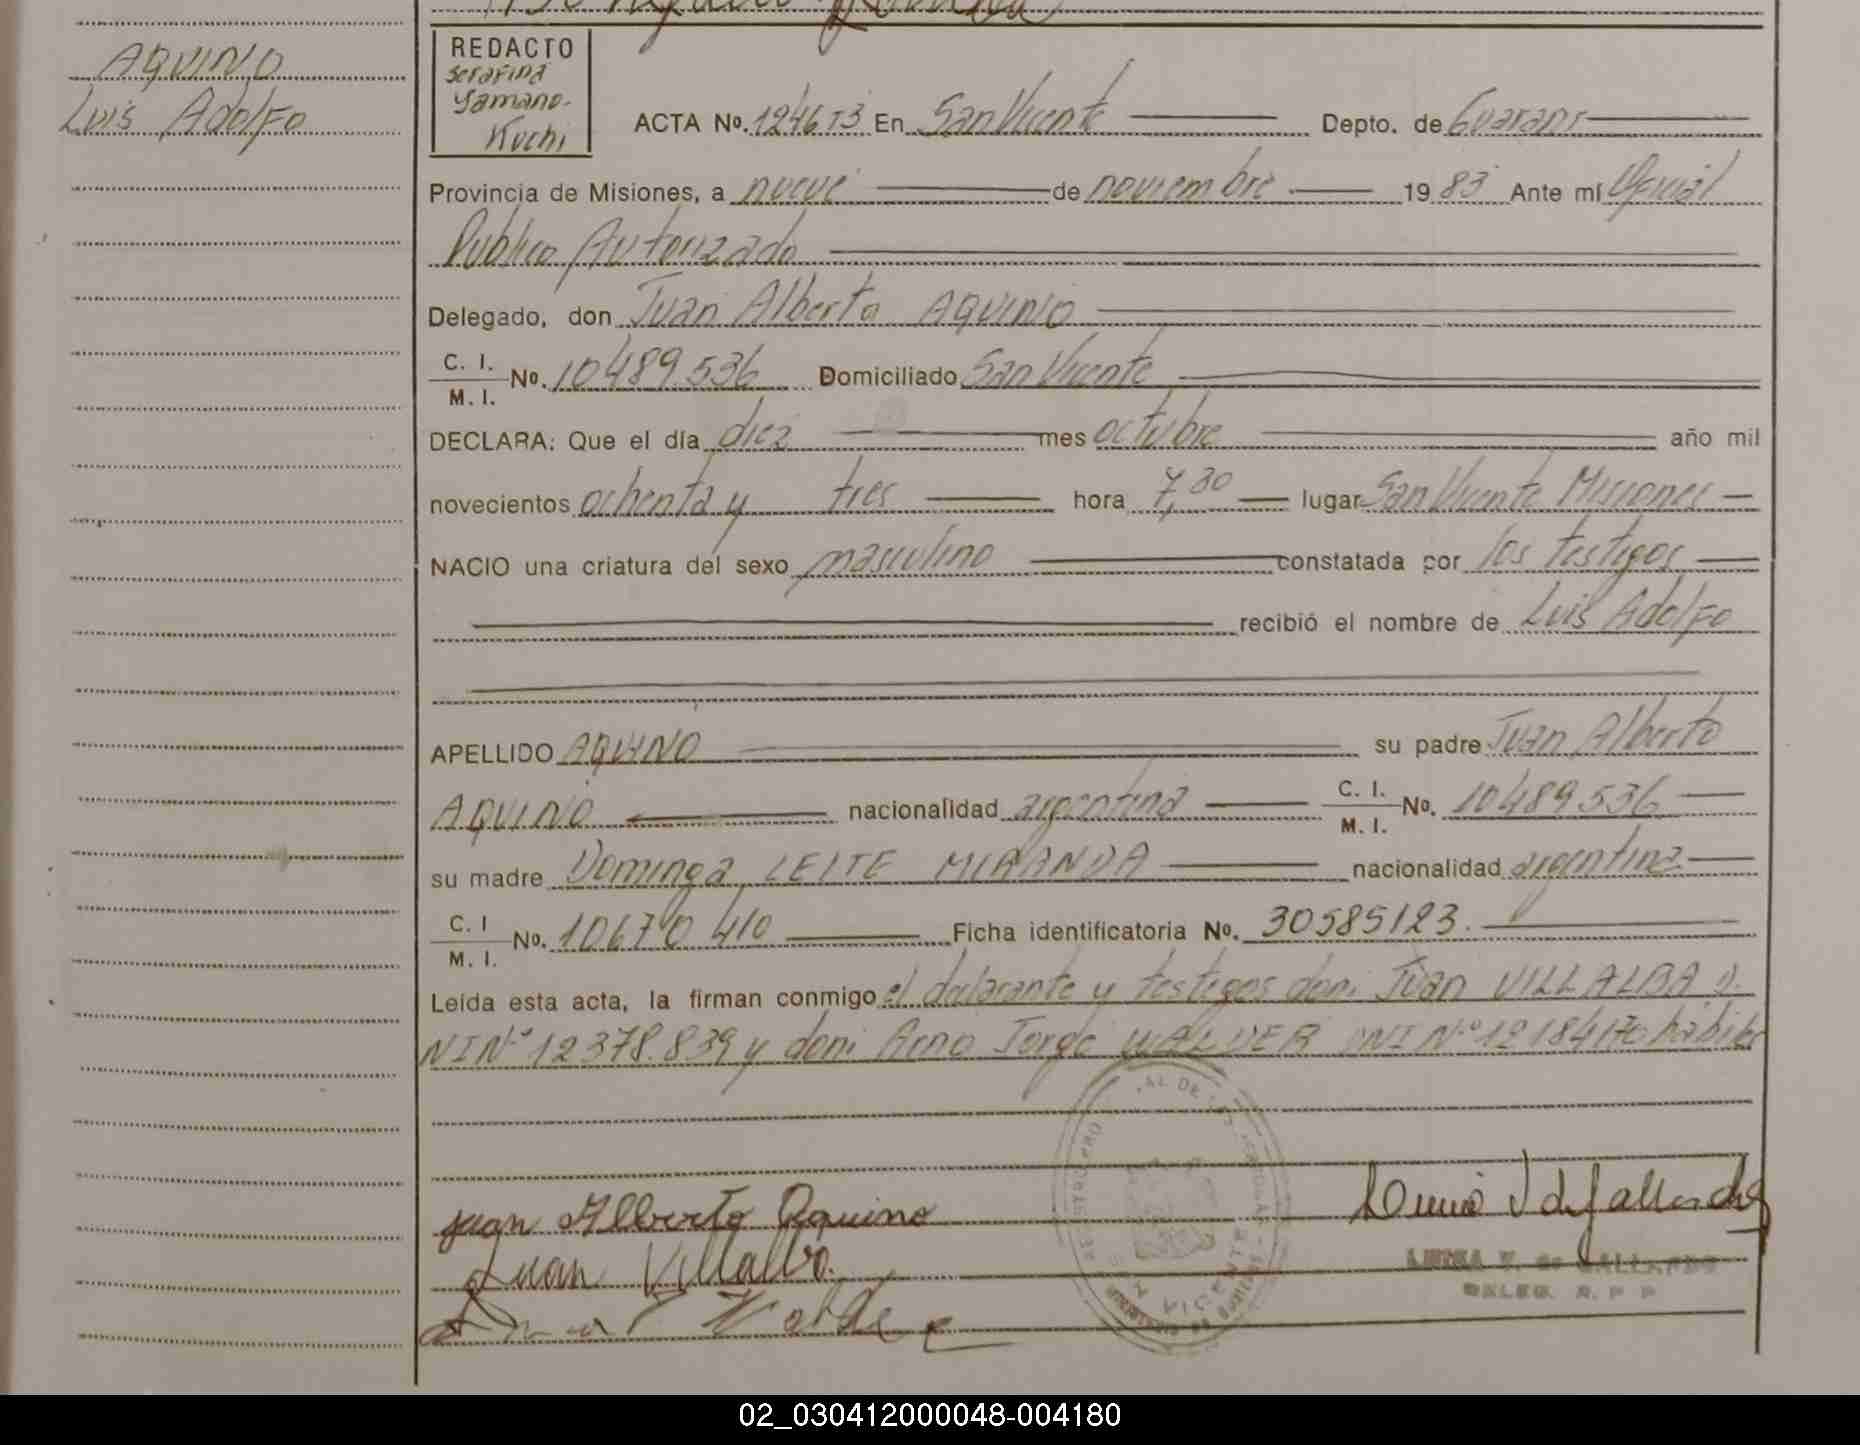 AQUINO
Luis Adolfo
REDACTO
Serafina
Yamano-
Kuchi
ACTA No. 1246 T3 En San Vicente Depto. de Guarani
Provincia de Misiones, a nueve de noviembre 1983 Ante mí Oficial
Publico Autorizado
Delegado, don Juan Alberto AQUINO
C. I.
M. I. No. 10489536 Domiciliado San Vicente
DECLARA: Que el día diez mes octubre año mil
novecientos ochenta y tres hora 7,30 lugar San Vicente Misiones
NACIO una criatura del sexo masculino constatada por los testigos
recibió el nombre de Luis Adolfo
APELLIDO AQUINO su padre Juan Alberto
AQUINO nacionalidad argentina C. I.
M. I. No. 10489536
su madre Dominga LEITE MIRANDA nacionalidad argentina
C. I
M. I. No. 10670410 Ficha identificatoria No. 30585123.
Leída esta acta, la firman conmigo el declarante y testigos don: Juan VILLALBA D.
NI Nº 12378.839 y don: Jorge DNI Nº habiles
Juan Alberto Aquino
Juan Villalba.
DELEG. R. P. P
SAN VICENTE
02_030412000048-004180